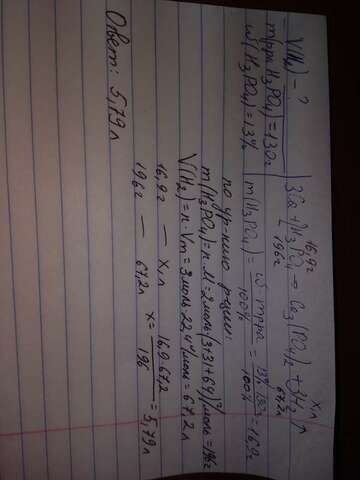 V(H₂) - ?
mр-ра H₃PO₄) = 130г
w(H₃PO₄) = 13%
16,9г x, л
3Ca + 2H₃PO₄ → Ca₃(PO₄)₂ + 3H₂↑
196г 67,2л
m(H₃PO₄) = w · mр-ра / 100% = 13% · 130г / 100% = 16,9
по ур-нию реакции:
m(H₃PO₄) = n · M = 2моль (3+31+64) г/моль = 196г
V(H₂) = n · Vm = 3моль · 22,4 л/моль = 67,2л
16,9г — x, л
196г — 67,2л
x = 16,9 · 67,2 / 196 = 5,79л
Ответ: 5,79л